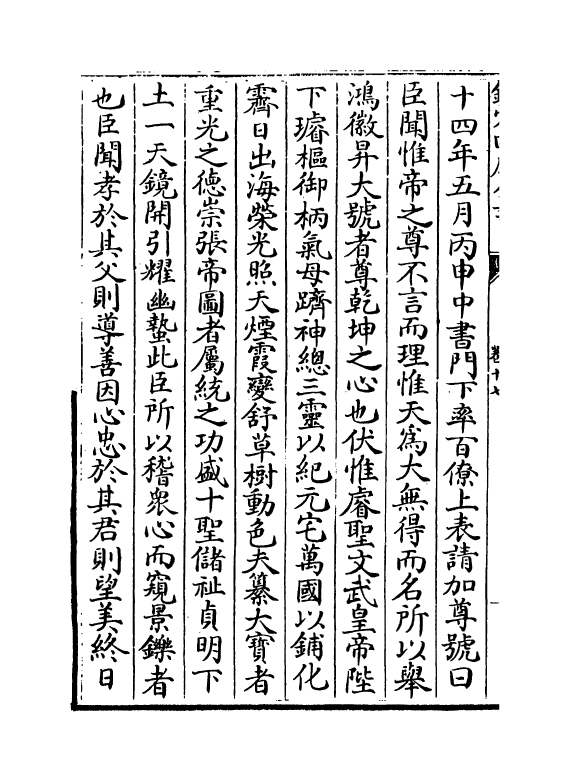 卷十七
十四年五月丙申中書門下率百僚上表請加尊號曰
臣聞惟帝之尊不言而理惟天爲大無得而名所以舉
鴻徽昇大號者尊乾坤之心也伏惟睿聖文武皇帝陛
下璿樞御柄氣母躋神總三靈以紀元宅萬國以鋪化
霽日出海榮光照天煙霞變舒草樹動色夫纂大寶者
重光之德崇張帝圖者屬統之功盛十聖儲祉貞明下
土一天鏡開引耀幽蟄此臣所以稽衆心而窺景鑠者
也臣聞孝於其父則導善因心忠於其君則望美終日